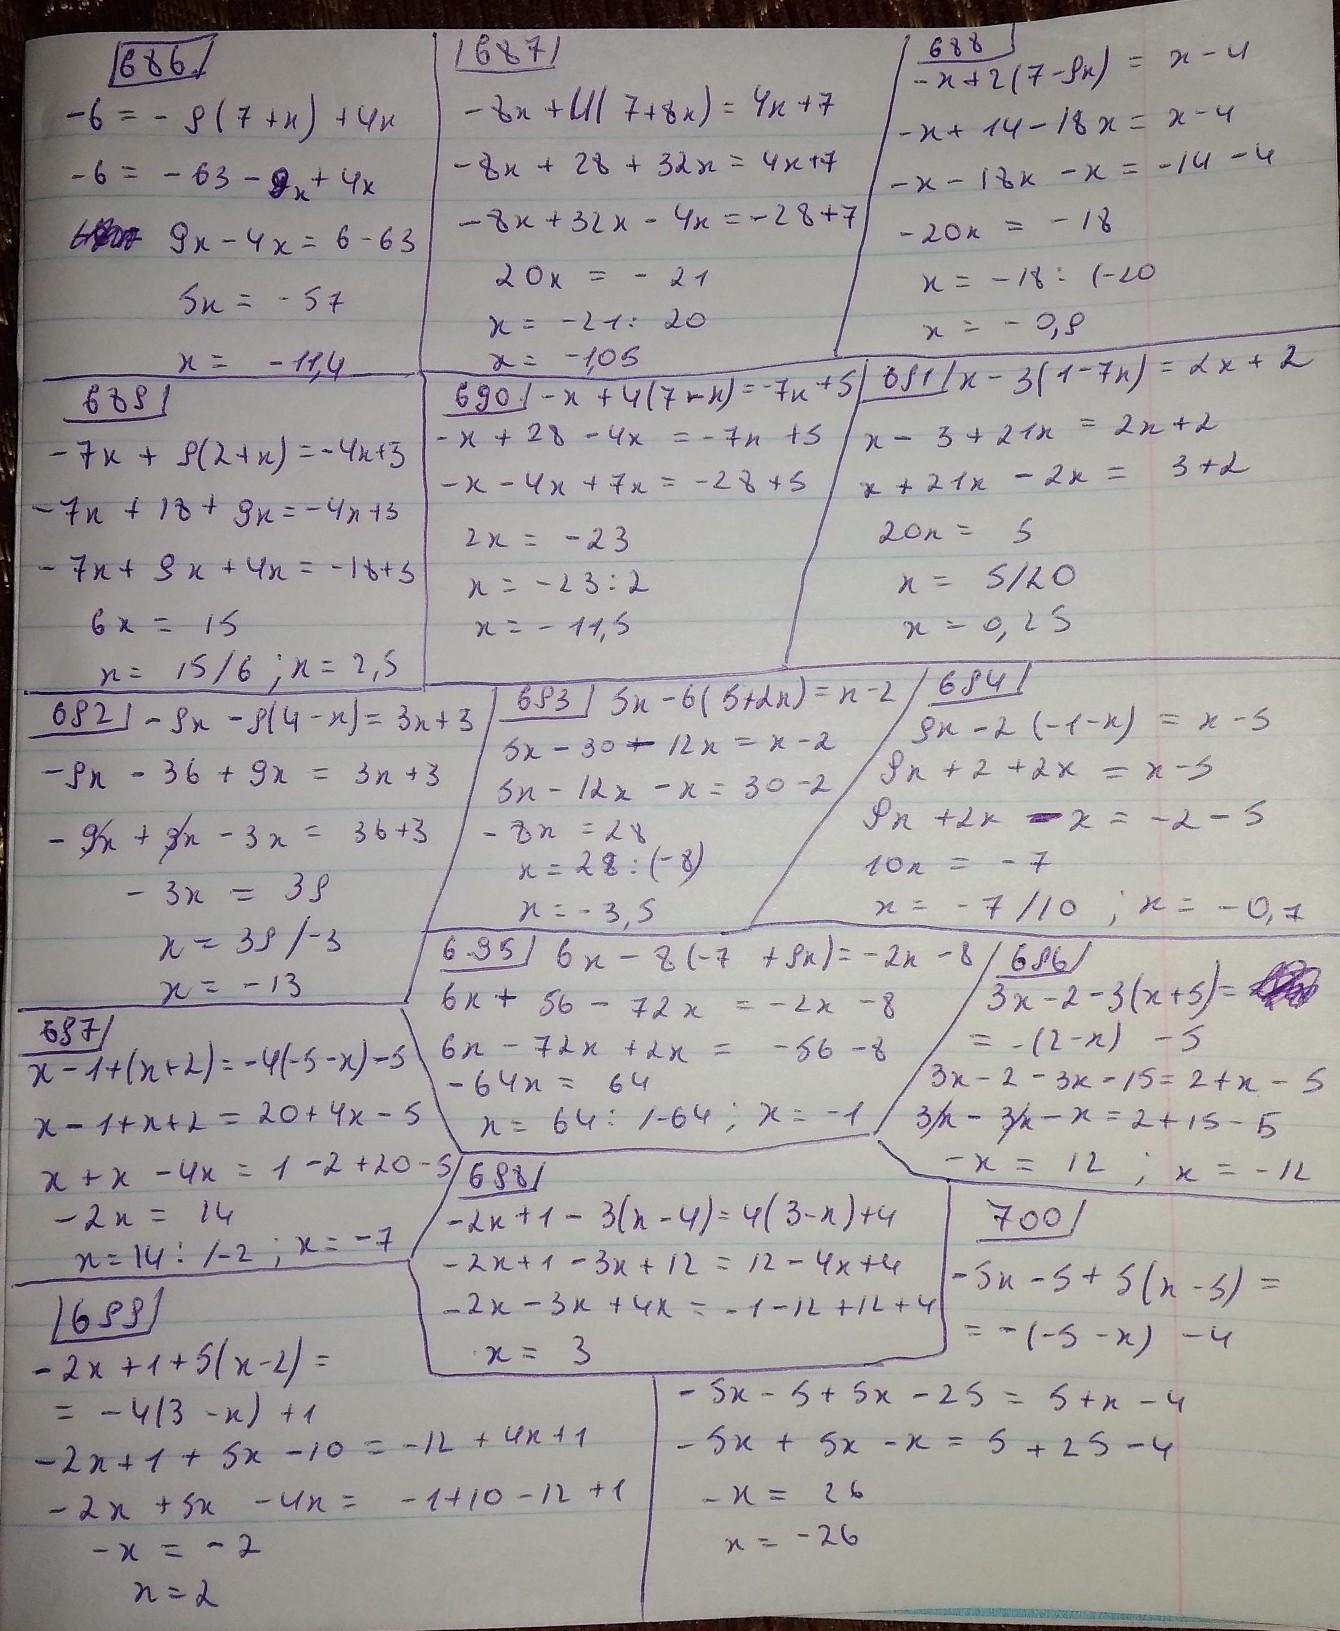 686
-6 = -9(7+x)+4x
-6 = -63-9x+4x
9x-4x = 6-63
5x = -57
x = -11,4
687
-8x+4(7+8x) = 4x+7
-8x+28+32x = 4x+7
-8x+32x-4x = -28+7
20x = -21
x = -21:20
x = -1,05
688
-x+2(7-9x) = x-4
-x+14-18x = x-4
-x-18x-x = -14-4
-20x = -18
x = -18:(-20
x = -0,9
689
-7x+9(2+x) = -4x+3
-7x+18+9x = -4x+3
-7x+9x+4x = -18+3
6x = 15
x = 15/6; x = 2,5
690 -x+4(7-x) = -7x+5
-x+28-4x = -7x+5
-x-4x+7x = -28+5
2x = -23
x = -23:2
x = -11,5
691 x-3(1-7x) = 2x+2
x-3+21x = 2x+2
x+21x-2x = 3+2
20x = 5
x = 5/20
x = 0,25
692 -9x-9(4-x) = 3x+3
-9x-36+9x = 3x+3
-9x+9x-3x = 36+3
-3x = 39
x = 39/-3
x = -13
693 5x-6(5+2x) = x-2
5x-30-12x = x-2
5x-12x-x = 30-2
-8x = 28
x = 28:(-8)
x = -3,5
694
9x-2(-1-x) = x-5
9x+2+2x = x-5
9x+2x-x = -2-5
10x = -7
x = -7/10; x = -0,7
695 6x-8(-7+9x) = -2x-8
6x+56-72x = -2x-8
6x-72x+2x = -56-8
-64x = 64
x = 64:/-64; x = -1
696
3x-2-3(x+5) =
= -(2-x)-5
3x-2-3x-15 = 2+x-5
3x-3x-x = 2+15-5
-x = 12; x = -12
697
x-1+(x+2) = -4(-5-x)-5
x-1+x+2 = 20+4x-5
x+x-4x = 1-2+20-5
-2x = 14
x = 14:/-2; x = -7
698
-2x+1-3(x-4) = 4(3-x)+4
-2x+1-3x+12 = 12-4x+4
-2x-3x+4x = -1-12+12+4
x = 3
699
-2x+1+5(x-2) =
= -4(3-x)+1
-2x+1+5x-10 = -12+4x+1
-2x+5x-4x = -1+10-12+1
-x = -2
x = 2
700
-5x-5+5(x-5) =
= -(-5-x)-4
-5x-5+5x-25 = 5+x-4
-5x+5x-x = 5+25-4
-x = 26
x = -26